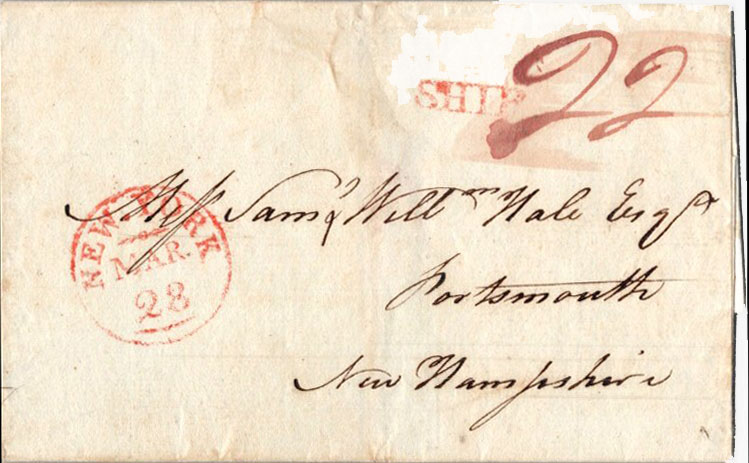 SHIP 22
Mess Saml & Willm Hale Esqrs
Portsmouth
New Hampshire
NEW YORK
MAR
28